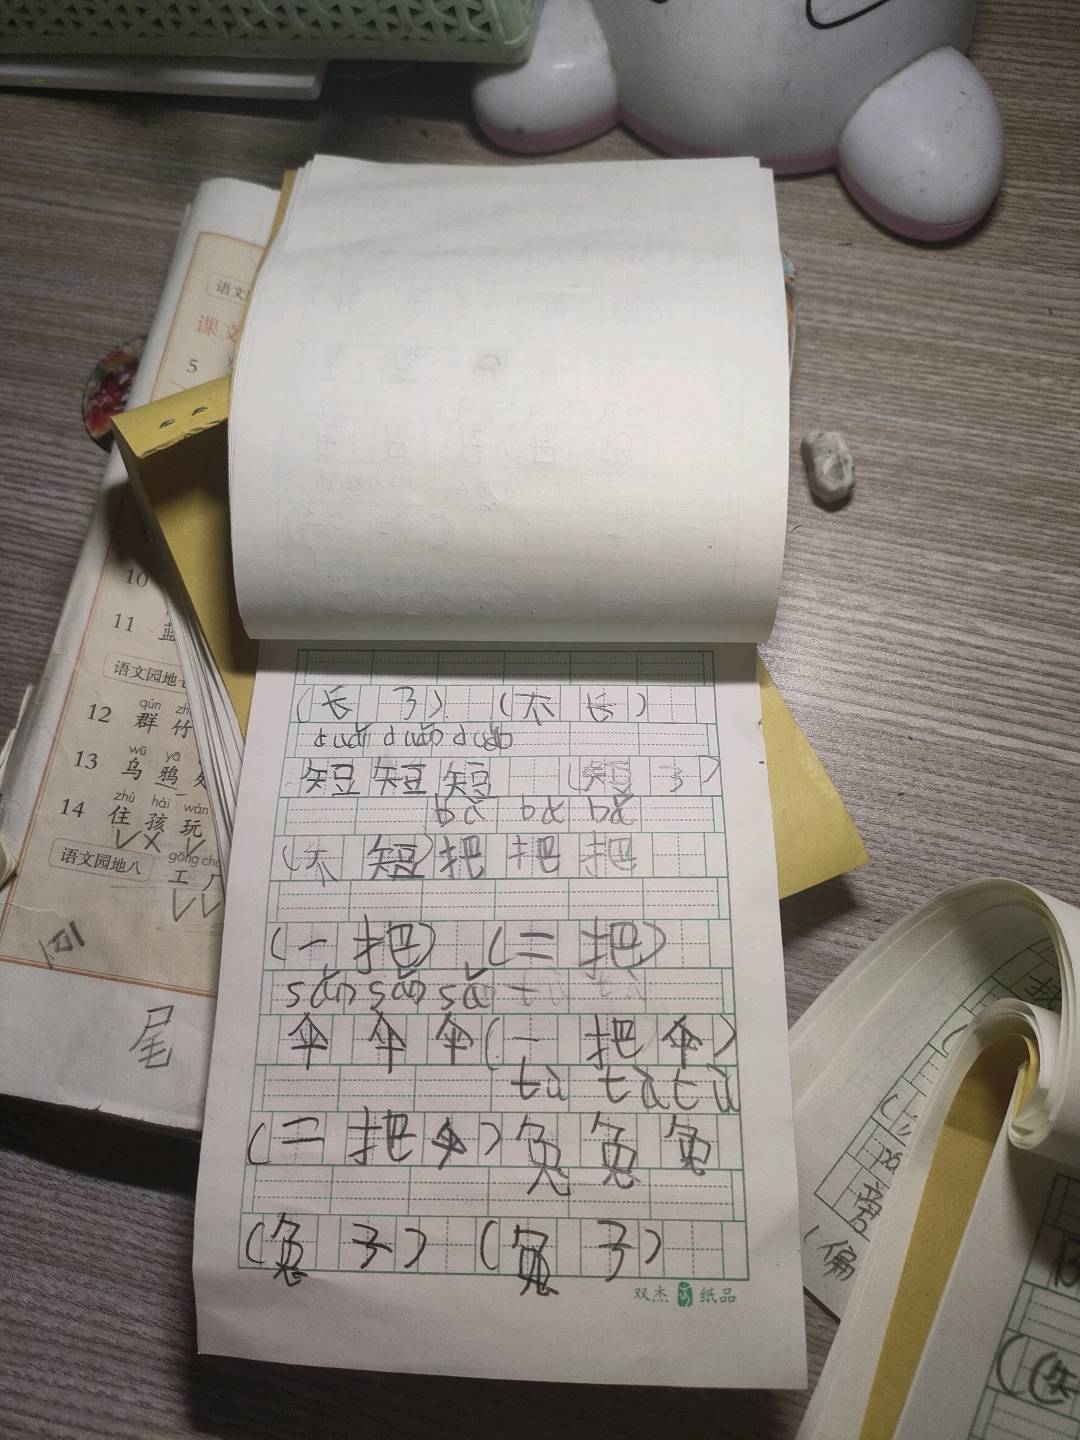 语文
课文
5
10
11 蓝
语文园地七
qún zh
12 群 竹
wū yā
13 乌 鸦 处
zhù hái wán
14 住 孩 玩
语文园地八
gōng chǎ
工 厂
尾
(长 了) (不 长)
duǎn duǎn duǎn
短 短 短 (短 了)
bǎ bǎ bǎ
(不 短) 把 把 把
(一 把) (二 把)
sǎn sǎn sǎ
伞 伞 伞 (一 把 伞)
tù tù tù
(二 把 伞) 兔 兔 兔
(兔 子) (兔 子)
双杰 纸品
(偏